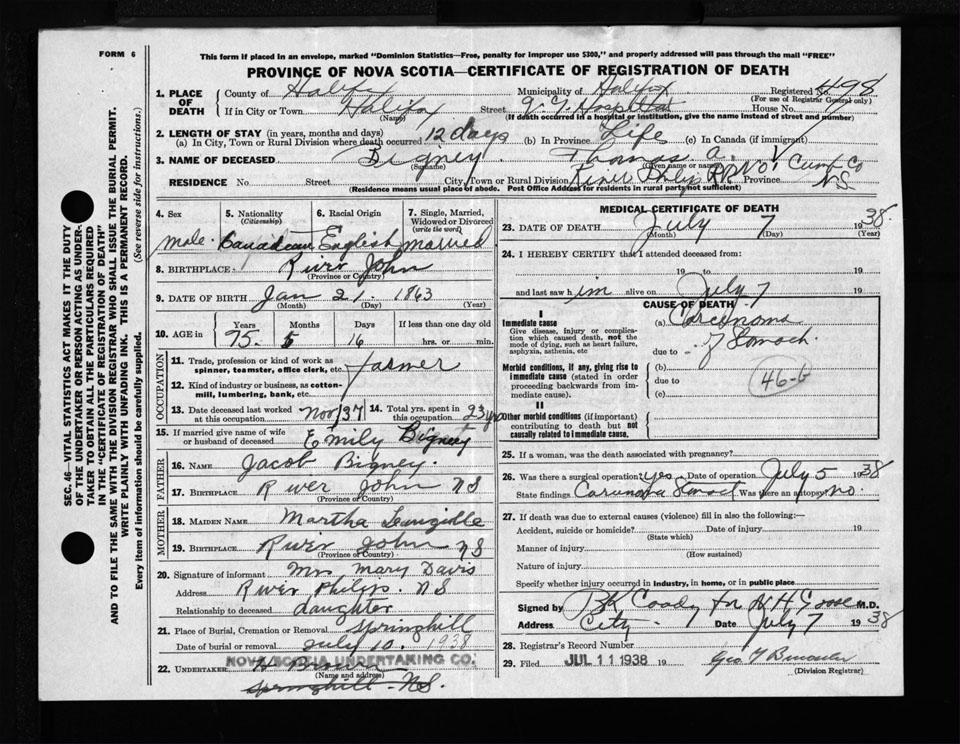 FORM 6
This form if placed in an envelope, marked "Dominion Statistics—Free, penalty for improper use $300," and properly addressed will pass through the mail "FREE"
PROVINCE OF NOVA SCOTIA—CERTIFICATE OF REGISTRATION OF DEATH
SEC. 46—VITAL STATISTICS ACT MAKES IT THE DUTY OF THE UNDERTAKER OR PERSON ACTING AS UNDERTAKER TO OBTAIN ALL THE PARTICULARS REQUIRED IN THE "CERTIFICATE OF REGISTRATION OF DEATH"
AND TO FILE THE SAME WITH THE DIVISION REGISTRAR WHO SHALL ISSUE THE BURIAL PERMIT.
WRITE PLAINLY WITH UNFADING INK. THIS IS A PERMANENT RECORD.
Every item of information should be carefully supplied. (See reverse side for instructions.)
1. PLACE OF DEATH County of Halifax Municipality of Halifax Registered No. 498
(For use of Registrar General only)
If in City or Town Halifax (Name) Street V. G. Hospital House No.
(If death occurred in a hospital or institution, give the name instead of street and number)
2. LENGTH OF STAY (in years, months and days)
(a) In City, Town or Rural Division where death occurred 12 days (b) In Province Life (c) In Canada (if immigrant)
3. NAME OF DECEASED Bigney (Surname) Thomas (Given name or names)
RESIDENCE No. Street City, Town or Rural Division River Philip RR No 1 Province Cum. Co NS
(Residence means usual place of abode. Post Office Address for residents in rural parts not sufficient)
4. Sex Male
5. Nationality (Citizenship) Canadian
6. Racial Origin English
7. Single, Married, Widowed or Divorced (write the word) Married
8. BIRTHPLACE River John
(Province or Country)
9. DATE OF BIRTH Jan 21. 1863
(Month) (Day) (Year)
10. AGE in Years 75 Months 5 Days 16 If less than one day old hrs. or min.
OCCUPATION
11. Trade, profession or kind of work as spinner, teamster, office clerk, etc. Farmer
12. Kind of industry or business, as cotton-mill, lumbering, bank, etc.
13. Date deceased last worked at this occupation Nov/37 14. Total yrs. spent in this occupation 23 yrs
15. If married give name of wife or husband of deceased Emily Bigney
FATHER
16. NAME Jacob Bigney
17. BIRTHPLACE River John NS
(Province or Country)
MOTHER
18. MAIDEN NAME Martha
19. BIRTHPLACE River John NS
(Province or Country)
20. Signature of informant Mrs Mary Davis
Address River Philip. NS
Relationship to deceased daughter
21. Place of Burial, Cremation or Removal Springhill
Date of burial or removal July 10. 1938
22. UNDERTAKER NOVA SCOTIA UNDERTAKING CO.
(Name and address)
Springhill NS.
MEDICAL CERTIFICATE OF DEATH
23. DATE OF DEATH July 7 1938
(Month) (Day) (Year)
24. I HEREBY CERTIFY that I attended deceased from:
19 to 19
and last saw him alive on July 7 19
CAUSE OF DEATH
I
Immediate cause
Give disease, injury or complication which caused death, not the mode of dying, such as heart failure, asphyxia, asthenia, etc
(a) Carcinoma
due to of Stomach.
Morbid conditions, if any, giving rise to immediate cause (stated in order proceeding backwards from immediate cause).
(b)
due to 46-b
(c)
II
Other morbid conditions (if important) contributing to death but not causally related to immediate cause.
25. If a woman, was the death associated with pregnancy?
26. Was there a surgical operation? yes Date of operation July 5 1938
State findings Carcinoma Stomach Was there an autopsy? no.
27. If death was due to external causes (violence) fill in also the following:—
Accident, suicide or homicide? Date of injury 19
(State which)
Manner of injury
(How sustained)
Nature of injury
Specify whether injury occurred in industry, in home, or in public place
Signed by Coady for M.D.
Address City Date July 7 1938
28. Registrar's Record Number
29. Filed JUL 11 1938 19
(Division Registrar)